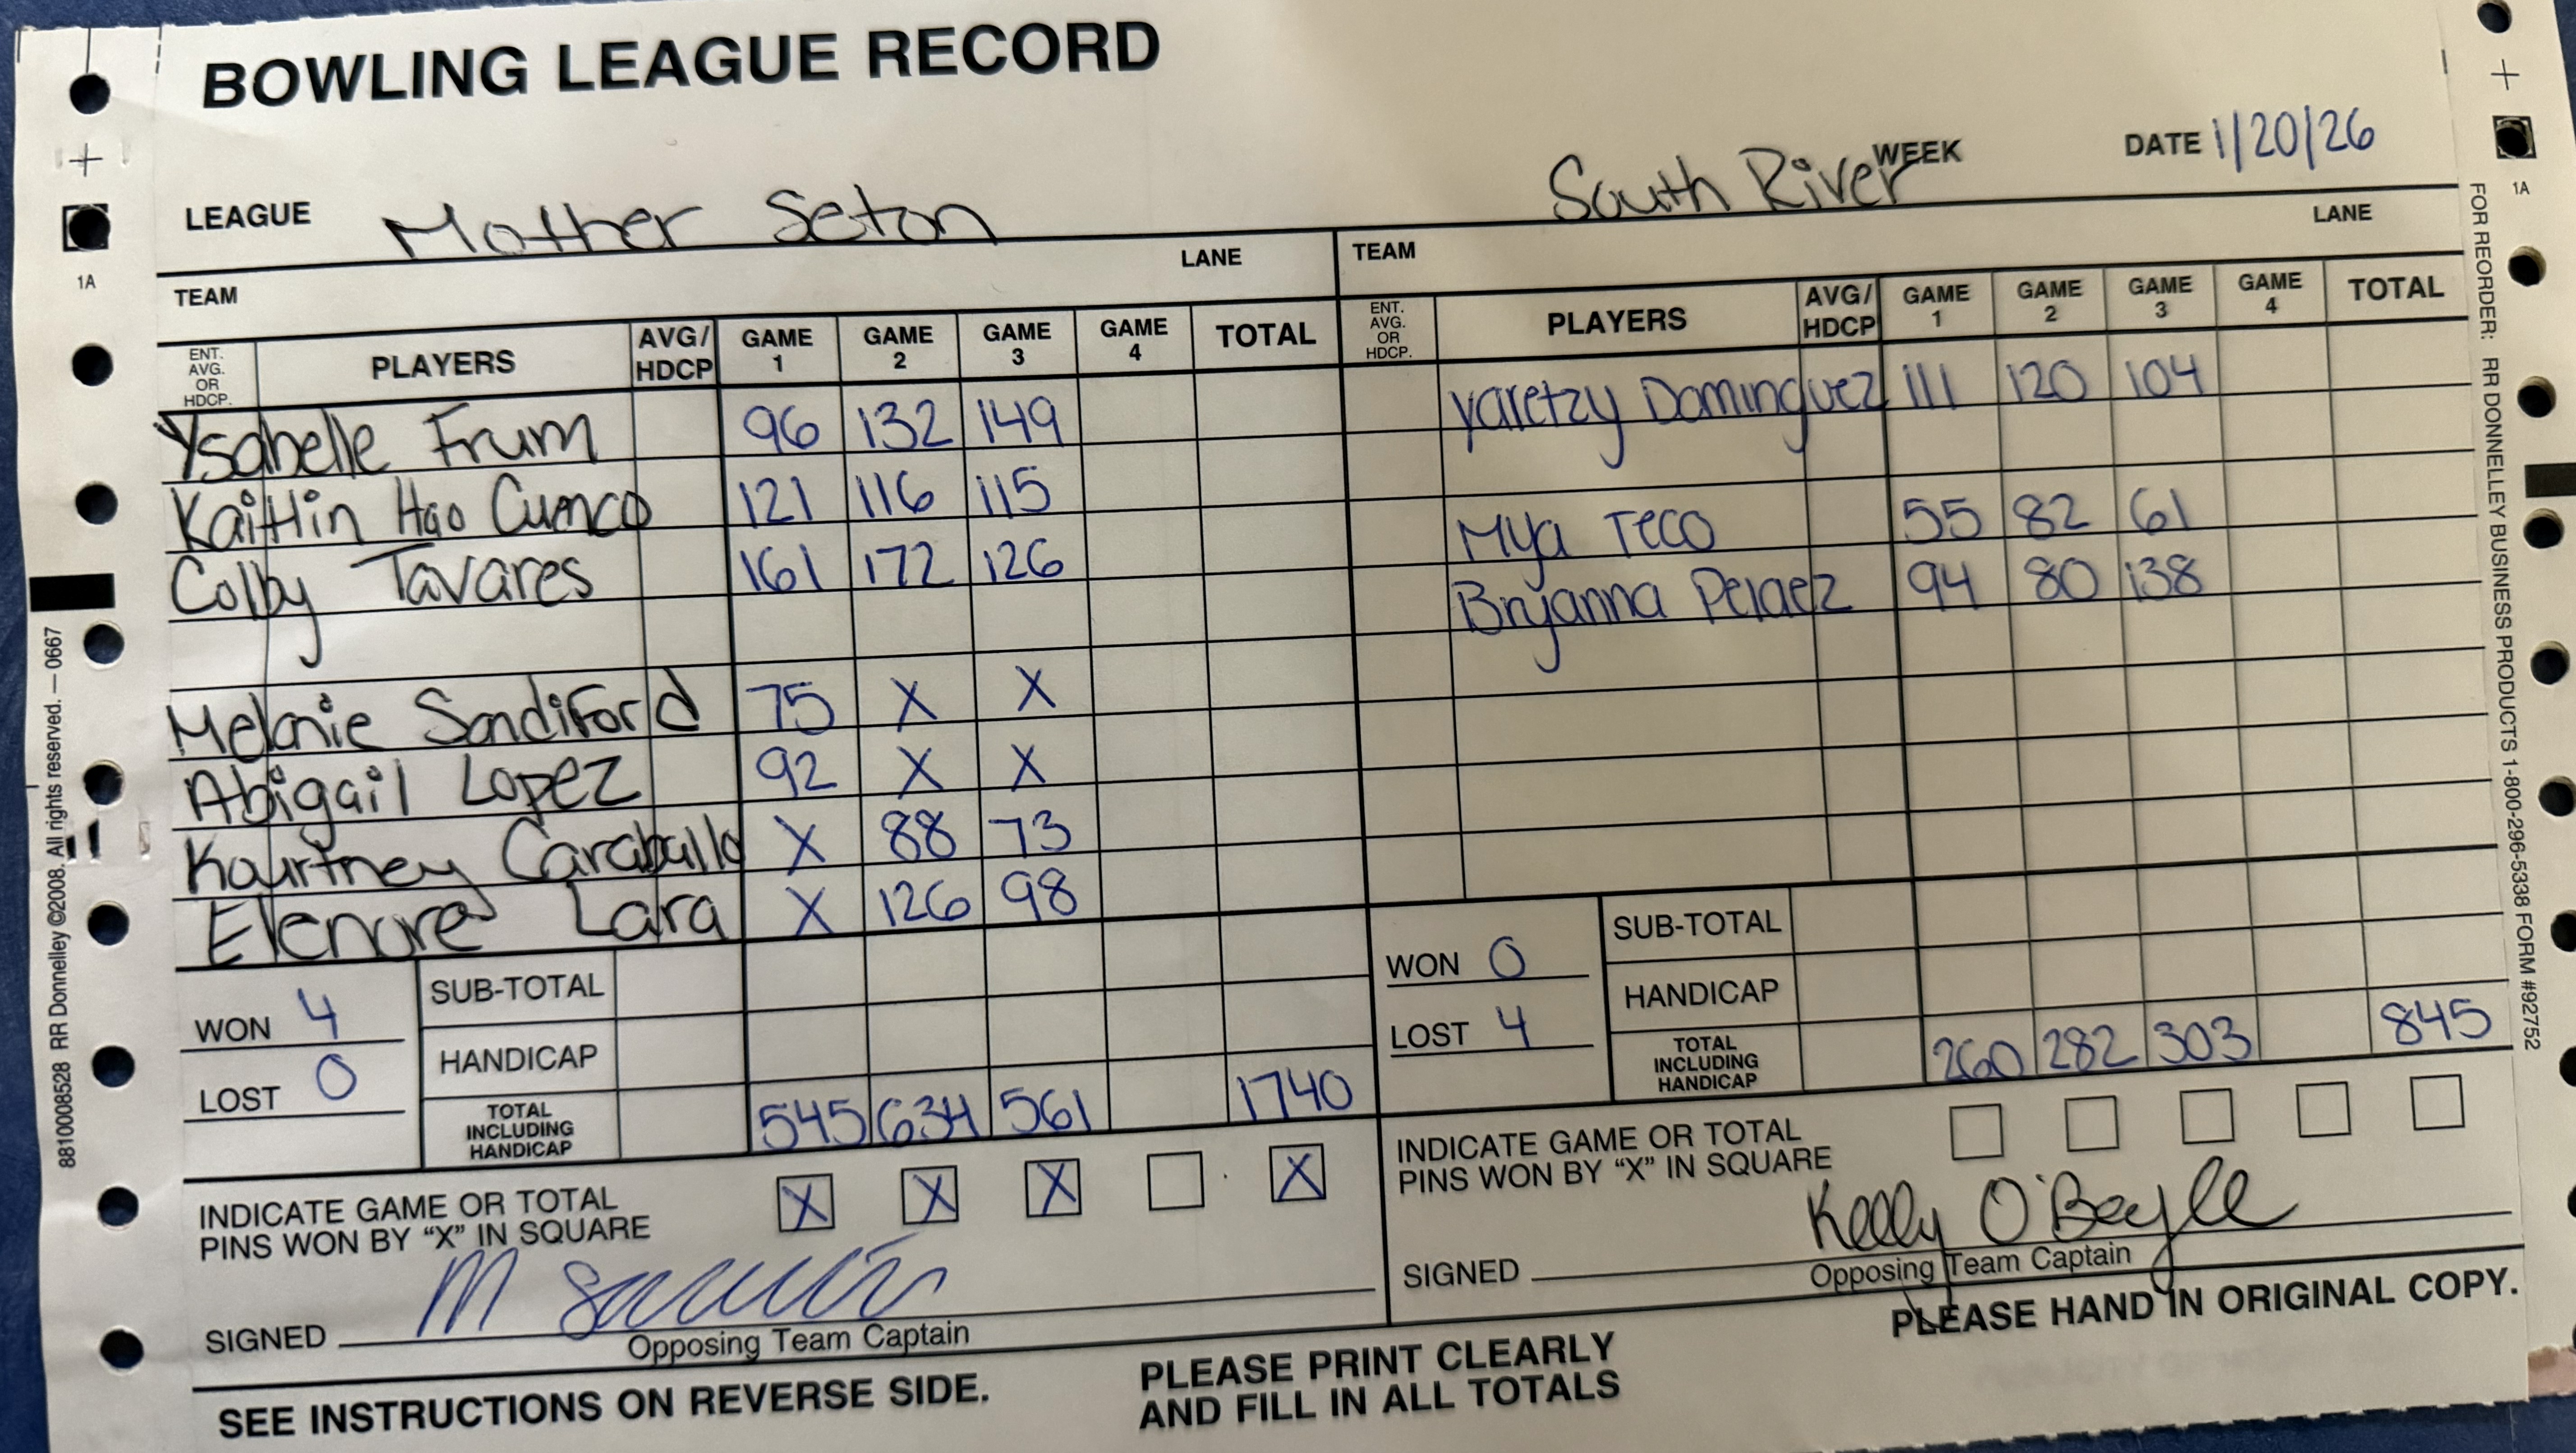 BOWLING LEAGUE RECORD
LEAGUE Mother Seton
South River WEEK
DATE 1/20/26
TEAM LANE
ENT. AVG. OR HDCP. PLAYERS AVG/HDCP GAME 1 GAME 2 GAME 3 GAME 4 TOTAL
Ysabelle Frum 96 132 149
Kaitlin Hao Cuenco 121 116 115
Colby Tavares 161 172 126
Melanie Sandiford 75 X X
Abigail Lopez 92 X X
Kourtney Caraballo X 88 73
Elenore Lara X 126 98
WON 4
LOST 0
SUB-TOTAL
HANDICAP
TOTAL INCLUDING HANDICAP 545 634 561 1740
INDICATE GAME OR TOTAL
PINS WON BY “X” IN SQUARE X X X X
SIGNED
Opposing Team Captain
TEAM LANE
ENT. AVG. OR HDCP. PLAYERS AVG/HDCP GAME 1 GAME 2 GAME 3 GAME 4 TOTAL
Yaretzy Dominguez 111 120 104
Mya Teco 55 82 61
Bryanna Pelaez 94 80 138
WON 0
LOST 4
SUB-TOTAL
HANDICAP
TOTAL INCLUDING HANDICAP 260 282 303 845
INDICATE GAME OR TOTAL
PINS WON BY “X” IN SQUARE
SIGNED Kelly O'Boyle
Opposing Team Captain
SEE INSTRUCTIONS ON REVERSE SIDE.
PLEASE PRINT CLEARLY
AND FILL IN ALL TOTALS
PLEASE HAND IN ORIGINAL COPY.
1A
8810008528 RR Donnelley ©2008. All rights reserved. — 0667
1A
FOR REORDER: RR DONNELLEY BUSINESS PRODUCTS 1-800-296-5338 FORM #92752